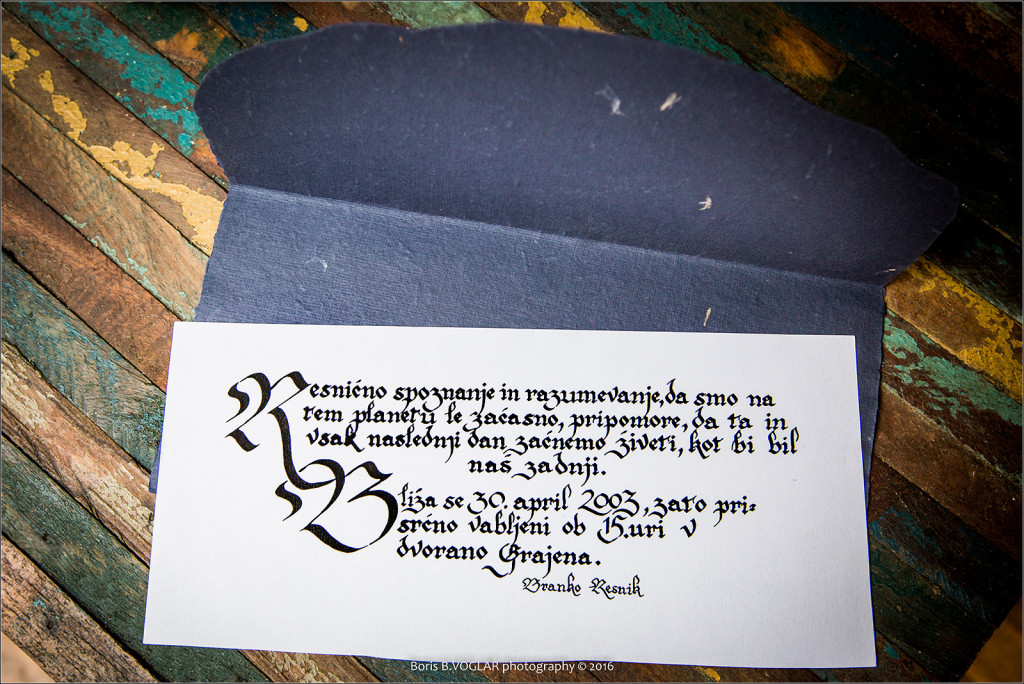 Resnično spoznanje in razumevanje, da smo na
tem planetu le začasno, pripomore, da ta in
vsak naslednji dan začnemo živeti, kot bi bil
naš zadnji.
Bliža se 30. april 2003, zato pri-
srčno vabljeni ob 15.uri v
dvorano Grajena.
Branko Resnik
Boris B.VOGLAR photography © 2016